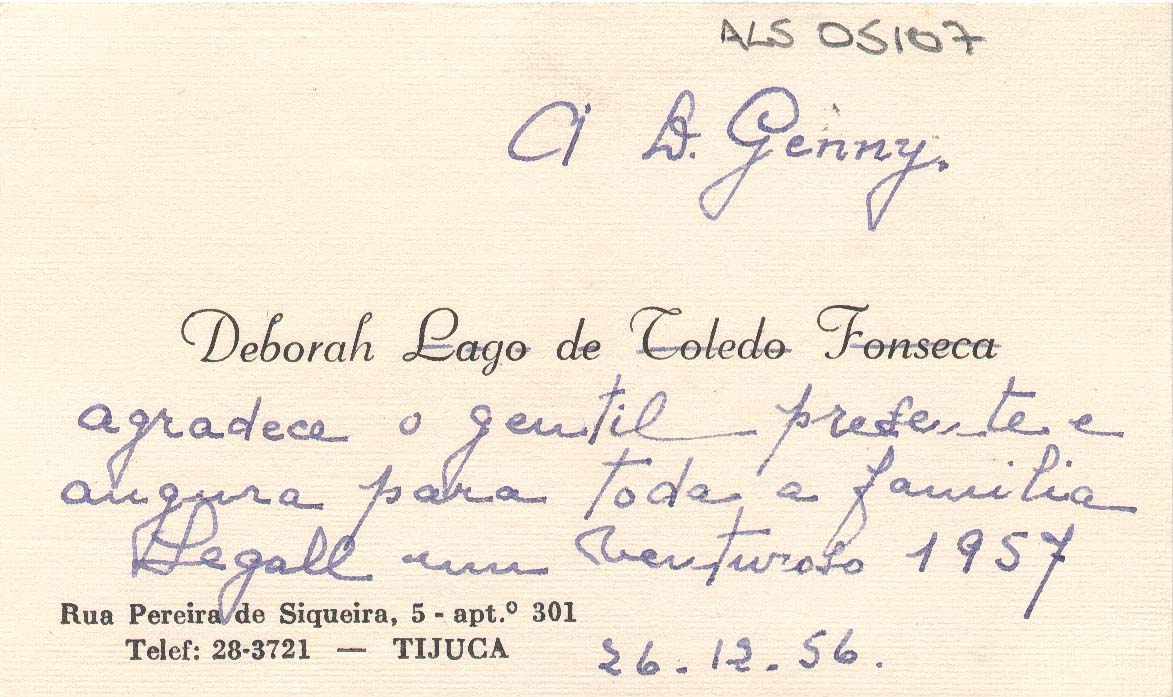 ALS 05107
À D. Genny,
Deborah Lago de Toledo Fonseca
agradece o gentil presente e
augura para toda a familia
Segall um venturoso 1957
Rua Pereira de Siqueira, 5 - apt.º 301
Telef: 28-3721 — TIJUCA
26.12.56.